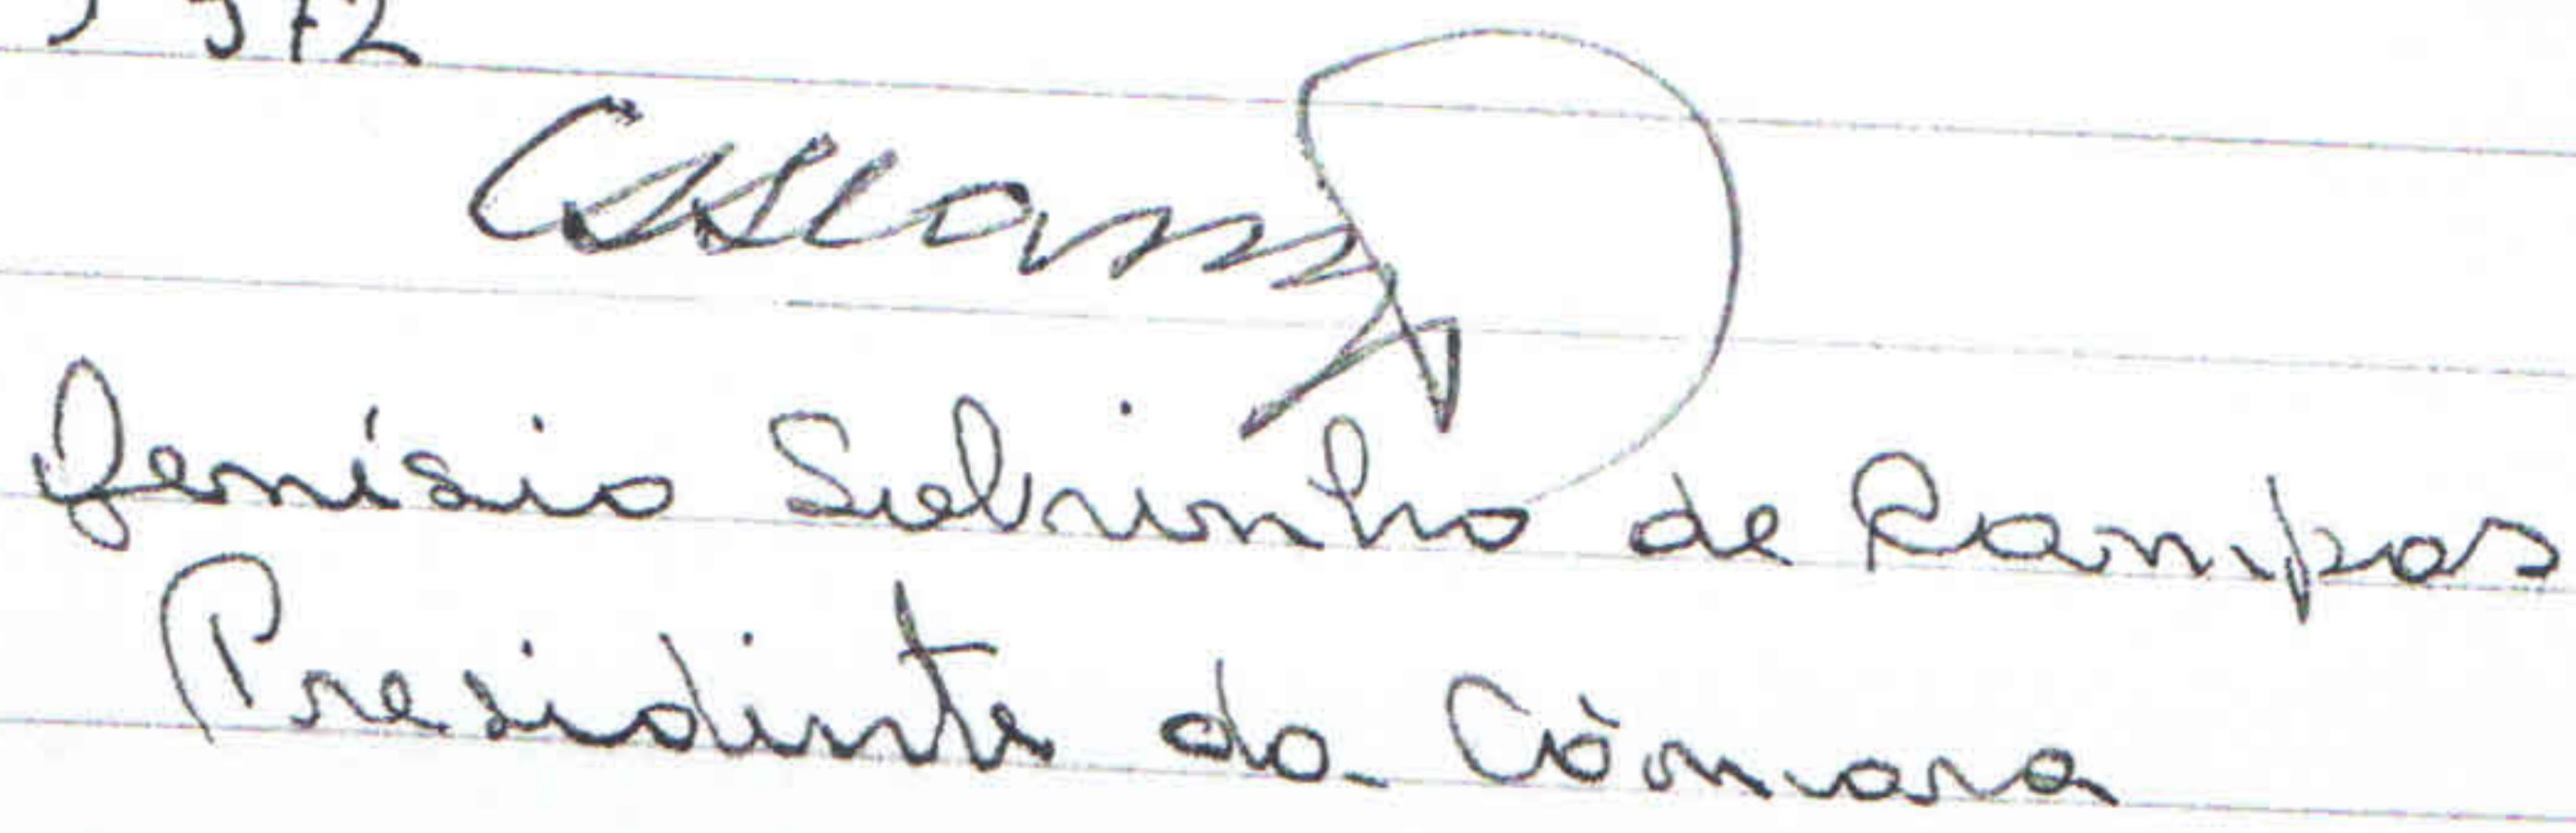 Genísio Sebrinho de Campos
Presidente da Câmara